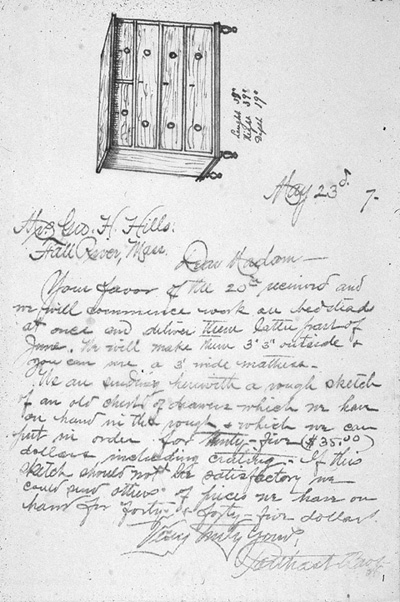 Height 39"
Depth 19"
May 23d 7-
Mrs Geo. H. Hills.
Fall River, Mass.
Dear Madam-
Your favor of the 20th received and
we will commence work on bedsteads
at once and deliver them latter part of
June. We will make them 3'3" outside &
you can use a 3' wide mattress.
We are sending herewith a rough sketch
of an old chest of drawers which we have
on hand in the rough & which we can
put in order for thirty-five ($35.00)
dollars including crating. If this
sketch should not be satisfactory we
could send others of pieces we have on
hand for forty & forty-five dollars.
Very truly yours,